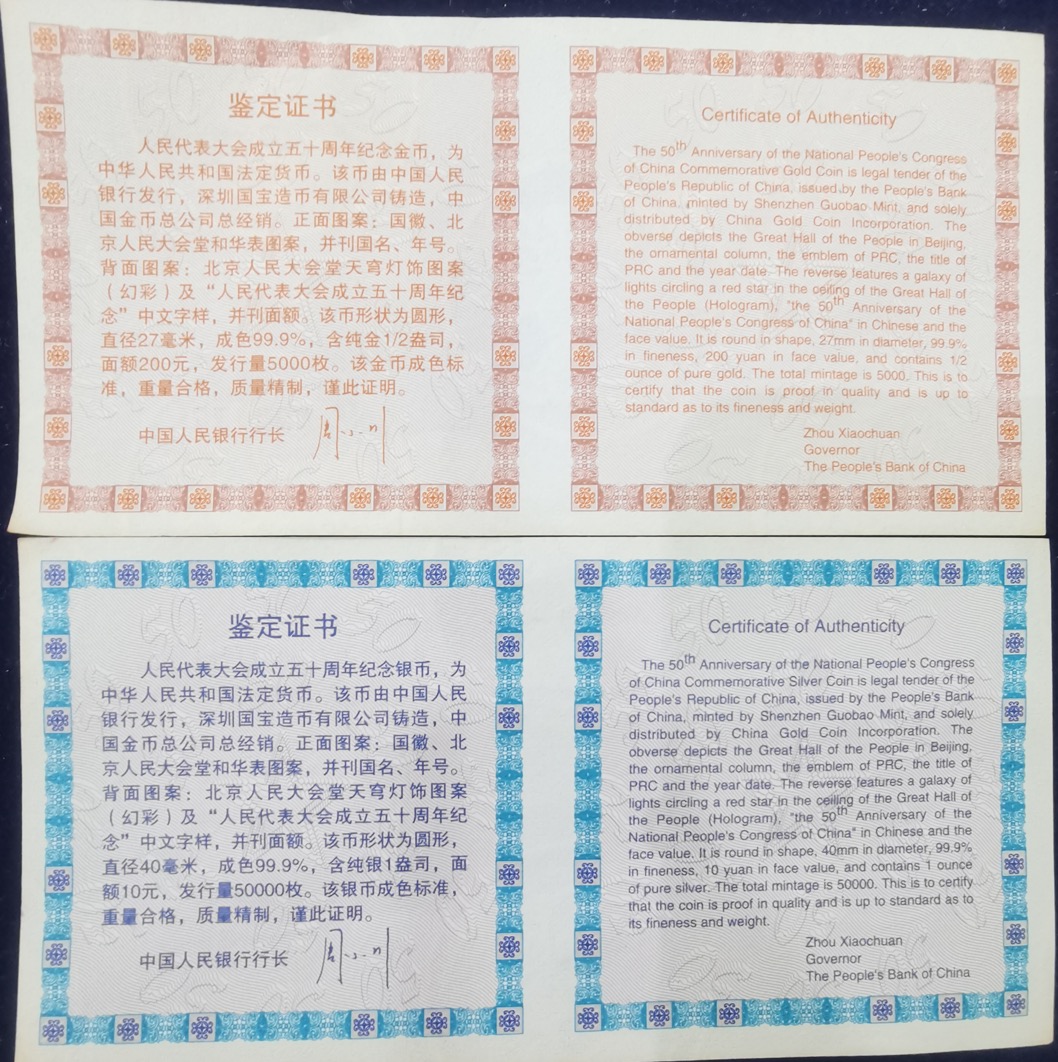 鉴定证书
人民代表大会成立五十周年纪念金币，为
中华人民共和国法定货币。该币由中国人民
银行发行，深圳国宝造币有限公司铸造，中
国金币总公司总经销。正面图案：国徽、北
京人民大会堂和华表图案，并刊国名、年号。
背面图案：北京人民大会堂天穹灯饰图案
（幻彩）及“人民代表大会成立五十周年纪
念”中文字样，并刊面额。该币形状为圆形，
直径27毫米，成色99.9%，含纯金1/2盎司，
面额200元，发行量5000枚。该金币成色标
准，重量合格，质量精制，谨此证明。
中国人民银行行长 周小川
Certificate of Authenticity
The 50th Anniversary of the National People's Congress
of China Commemorative Gold Coin is legal tender of the
People's Republic of China, issued by the People's Bank
of China, minted by Shenzhen Guobao Mint, and solely
distributed by China Gold Coin Incorporation. The
obverse depicts the Great Hall of the People in Beijing,
the ornamental column, the emblem of PRC, the title of
PRC and the year date. The reverse features a galaxy of
lights circling a red star in the ceiling of the Great Hall of
the People (Hologram), "the 50th Anniversary of the
National People's Congress of China" in Chinese and the
face value. It is round in shape, 27mm in diameter, 99.9%
in fineness, 200 yuan in face value, and contains 1/2
ounce of pure gold. The total mintage is 5000. This is to
certify that the coin is proof in quality and is up to
standard as to its fineness and weight.
Zhou Xiaochuan
Governor
The People's Bank of China
鉴定证书
人民代表大会成立五十周年纪念银币，为
中华人民共和国法定货币。该币由中国人民
银行发行，深圳国宝造币有限公司铸造，中
国金币总公司总经销。正面图案：国徽、北
京人民大会堂和华表图案，并刊国名、年号。
背面图案：北京人民大会堂天穹灯饰图案
（幻彩）及“人民代表大会成立五十周年纪
念”中文字样，并刊面额。该币形状为圆形，
直径40毫米，成色99.9%，含纯银1盎司，面
额10元，发行量50000枚。该银币成色标准，
重量合格，质量精制，谨此证明。
中国人民银行行长 周小川
Certificate of Authenticity
The 50th Anniversary of the National People's Congress
of China Commemorative Silver Coin is legal tender of the
People's Republic of China, issued by the People's Bank
of China, minted by Shenzhen Guobao Mint, and solely
distributed by China Gold Coin Incorporation. The
obverse depicts the Great Hall of the People in Beijing,
the ornamental column, the emblem of PRC, the title of
PRC and the year date. The reverse features a galaxy of
lights circling a red star in the ceiling of the Great Hall of
the People (Hologram), "the 50th Anniversary of the
National People's Congress of China" in Chinese and the
face value. It is round in shape, 40mm in diameter, 99.9%
in fineness, 10 yuan in face value, and contains 1 ounce
of pure silver. The total mintage is 50000. This is to certify
that the coin is proof in quality and is up to standard as to
its fineness and weight.
Zhou Xiaochuan
Governor
The People's Bank of China